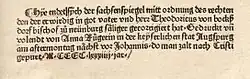 Hye endet sich der sachsenspiegel mit ordnung des rechten
den der erwirdig in got vater vnd herr Theodoricus von bocks
dorf bischof zu neünburg säliger gecorrigieret hat. Gedruckt vñ
volendt von Anna Rügerin in der keyserlichen stat Augspurg
am aftermontag nächst vor Johannis. do man zalt nach Cristi
gepurt. M. CCCC. lxxxiiij. jar.